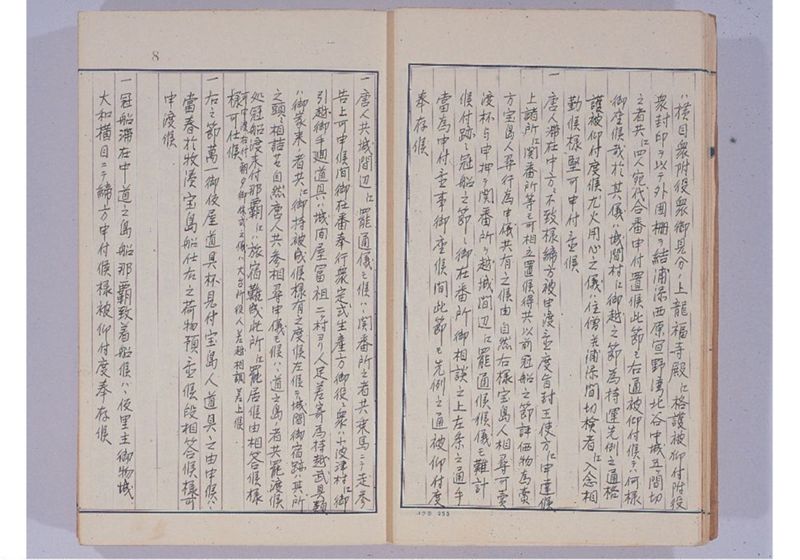 ハ横目衆附役衆御見分ノ上龍福寺殿ニ格護被仰付附役
衆封印ヲ以テ外囲柵ヲ結浦添西原宜野湾北谷中城五間切
之者共ニ四人宛代合番申付置候此節モ右通被仰付候テハ何様
御座候哉於其儀ハ城間村ニ御越之節為持運先例之通格
護被仰付度候尤火用心之儀ハ住僧并浦添間切検者ニ入念相
勤候様堅可申付候
一唐人滞在中方不致様締方被申渡度旨封王使方ニ申達候
上諸所ニ関番所等モ可相立置候得共以前冠船之節評価物為売
方宝島人尋行為申儀共有之候由自然右様宝島人相尋可売
渡杯与申押テ関番所ヲ越城間辺ニ罷通候儀モ難計
候付跡々冠船之節ハ御在番所御相談之上左条之通手
当為申付事御座候間此節モ先例之通被仰付度
奉存候
8
一唐人共城間辺ニ罷通儀モ候ハハ関番所之者共来馬ニテ走参
告上可申候間御在番奉行衆定式生産方御役々衆ハ小波津村ニ御
引越御手廻道具ハ城間屋富祖二ヶ村ヨリ人足差寄為持越武具類
ハ御蔵末ノ者共ニ御持被成候様有之度候左候テ城間御宿跡ハ其所
之頭々相詰させ自然唐人共参相尋申儀モ候ハハ道之島ノ者共罷渡候
処冠船渡来付那覇ニハ旅宿難成此所ニ罷居候由相答候様
可申渡
様可仕候
一右之節萬一御仮屋道具杯見付宝島人道具之由申候ハハ
當春於牧湊宝島船仕左之荷物預候段相答候様可
申渡候
一冠船滞在中道之島船那覇致着船候ハハ仮里主御物城
大和横目ニテ締方申付候様被仰付度奉存候